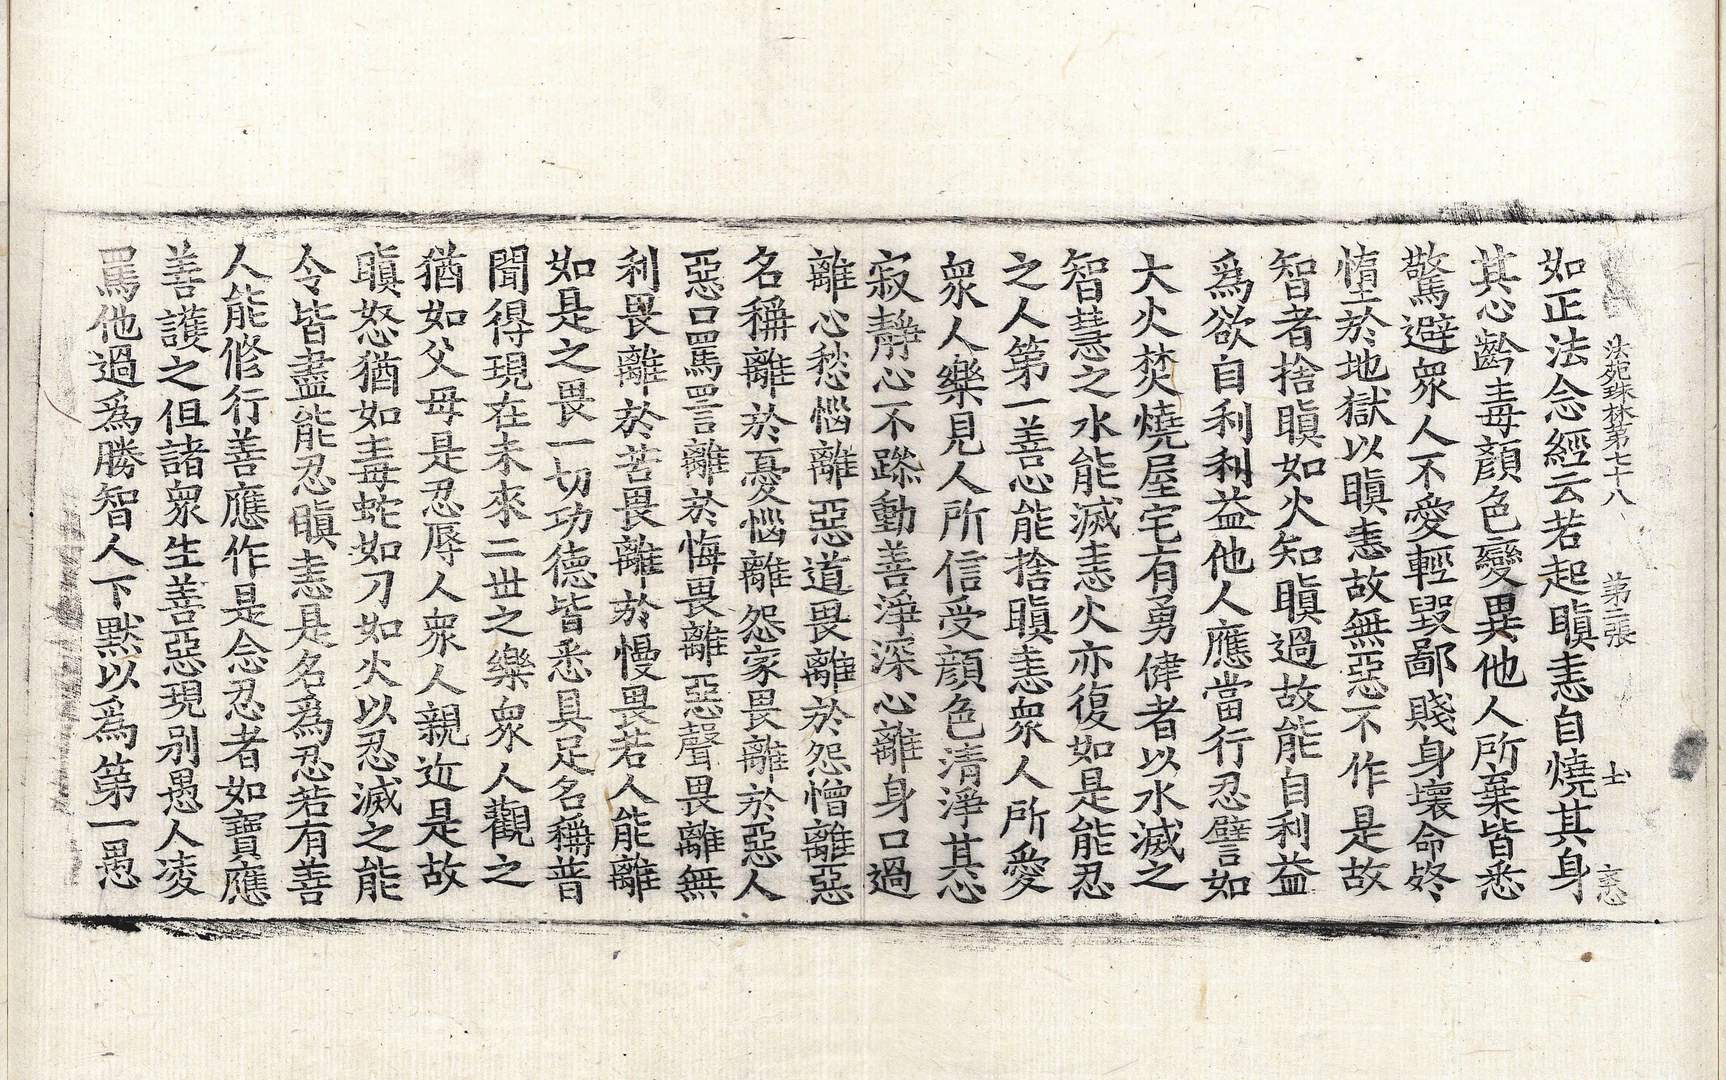 法苑珠林第七十八 第三張 士 惑
如正法念經云若起瞋恚自燒其身
其心齡毒顏色變異他人所棄皆悉
驚避衆人不愛輕毀鄙賤身壞命終
墮於地獄以瞋恚故無惡不作是故
智者捨瞋如火知瞋過故能自利益
爲欲自利利益他人應當行忍譬如
大火焚燒屋宅有勇健者以水滅之
智慧之水能滅恚火亦復如是能忍
之人第一善心能捨瞋恚衆人所愛
衆人樂見人所信受顔色清淨其心
寂靜心不躁動善淨深心離身口過
離心愁惱離惡道畏離於怨憎離惡
名稱離於憂惱離怨家畏離於惡人
惡口罵詈離於悔畏離惡聲畏離無
利畏離於苦畏離於慢畏若人能離
如是之畏一切功德皆悉具足名稱普
聞得現在未來二世之樂衆人觀之
猶如父母是忍辱人衆人親近是故
瞋怒猶如毒蛇如刀如火以忍滅之能
令皆盡能忍瞋恚是名爲忍若有善
人能修行善應作是念忍者如寶應
善護之但諸衆生善惡現別愚人凌
罵他過爲勝智人下默以爲第一愚